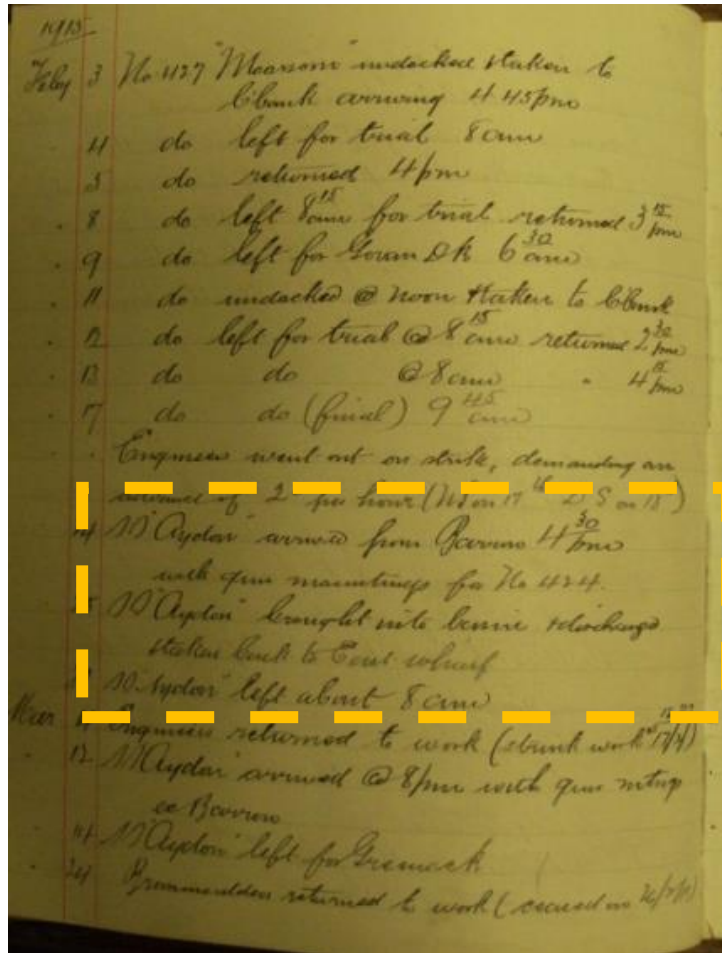 1915
Feby 3 No 427 "Moorsom" undocked & taken to
C'bank arriving 4 45pm
4 do left for trial 8 am
5 do returned 4 pm
8 do left 8 15 am for trial returned 3 15 pm
9 do left for Govan Dk 6 30 am
11 do undocked @ noon & taken to C'bank
12 do left for trial @ 8 15 am returned 2 30 pm
13 do do @ 8 am " 4 15 pm
17 do do (final) 9 45 am
Engineers went out on strike, demanding an
advance of 2 per hour ( on 17th on 18)
14 SS "Aydon" arrived from Barrow 4 30 pm
with gun mountings for No 424.
15 SS "Aydon" brought into basin & discharged
& taken back to East wharf
SS "Aydon" left about 8 am
Mar Engineers returned to work (struck work
12 SS "Aydon" arrived @ 8 pm with gun mtngs
ex Barrow
14 SS "Aydon" left for Greenock
24 returned to work (